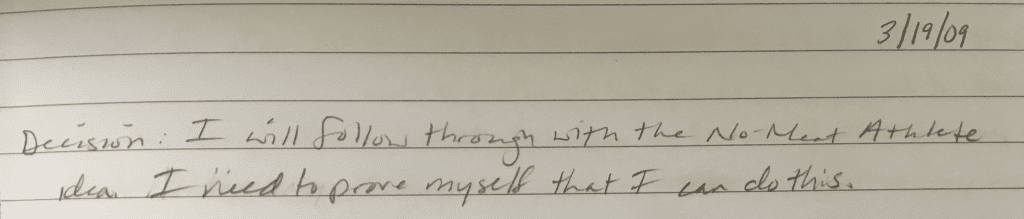 3/19/09
Decision: I will follow through with the No-Meat Athlete
idea. I need to prove myself that I can do this.